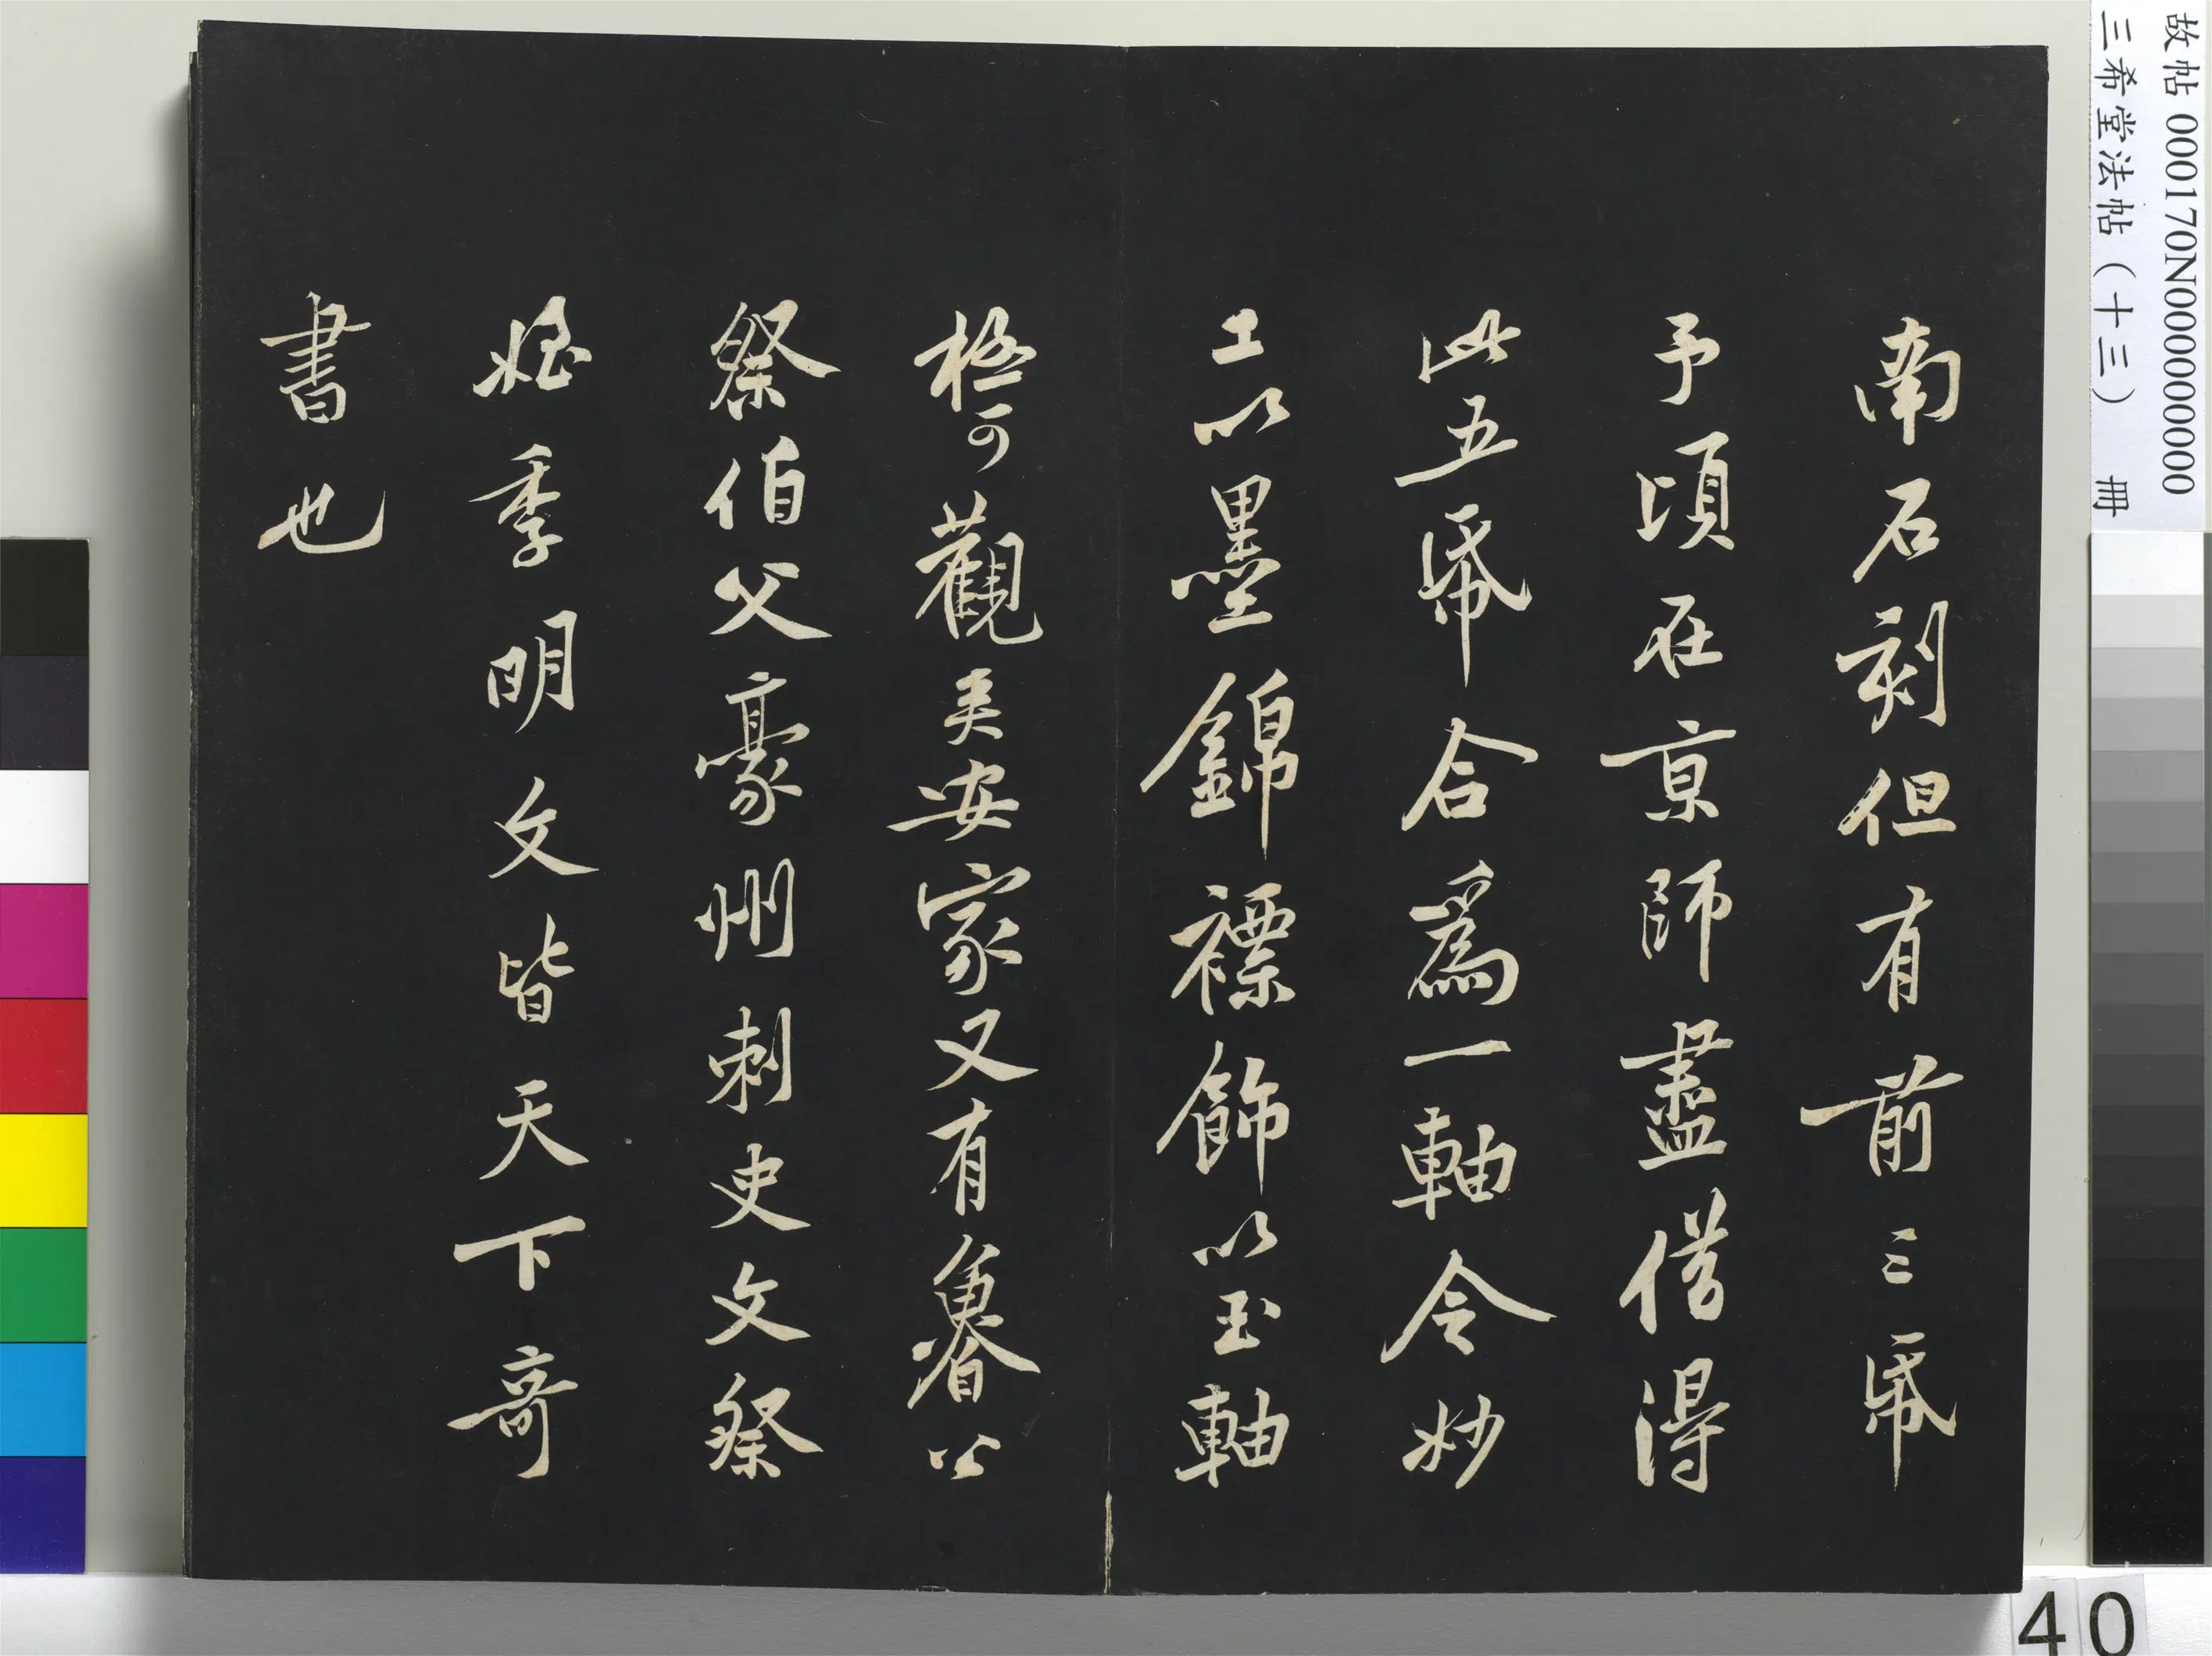 南石刻但有前三帋
予頃在京師盡借得
此五帋合爲一軸令妙
工以墨錦褾飾以玉軸
極可觀美安家又有魯公
祭伯父豪州刺史文祭
姪季明文皆天下奇
書也
故帖 000170N000000000
三希堂法帖（十三） 冊
40